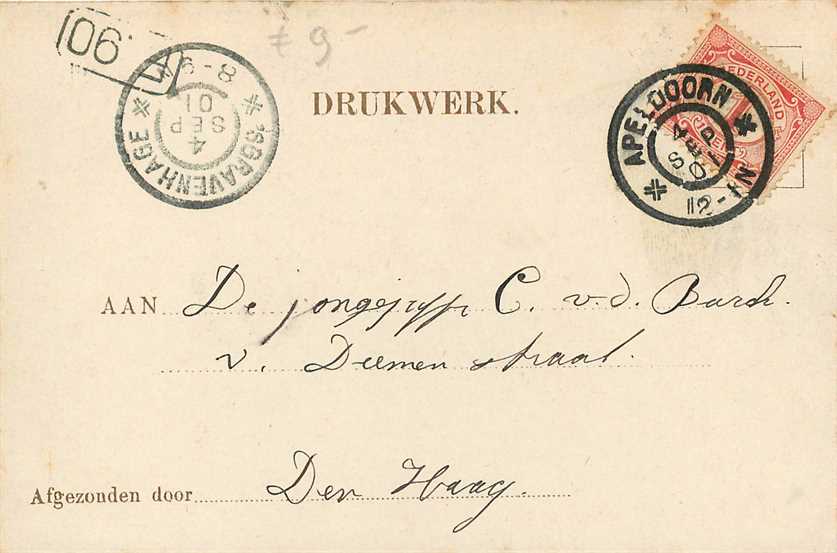 90
ƒ 9-
'SGRAVENHAGE
8-9V
4
SEP
01
DRUKWERK.
NEDERLAND
1
APELDOORN
4
SEP
01
12-1N
AAN De jongejuffr C. v. d. Burch.
v. Diemen straat.
Afgezonden door Den Haag.